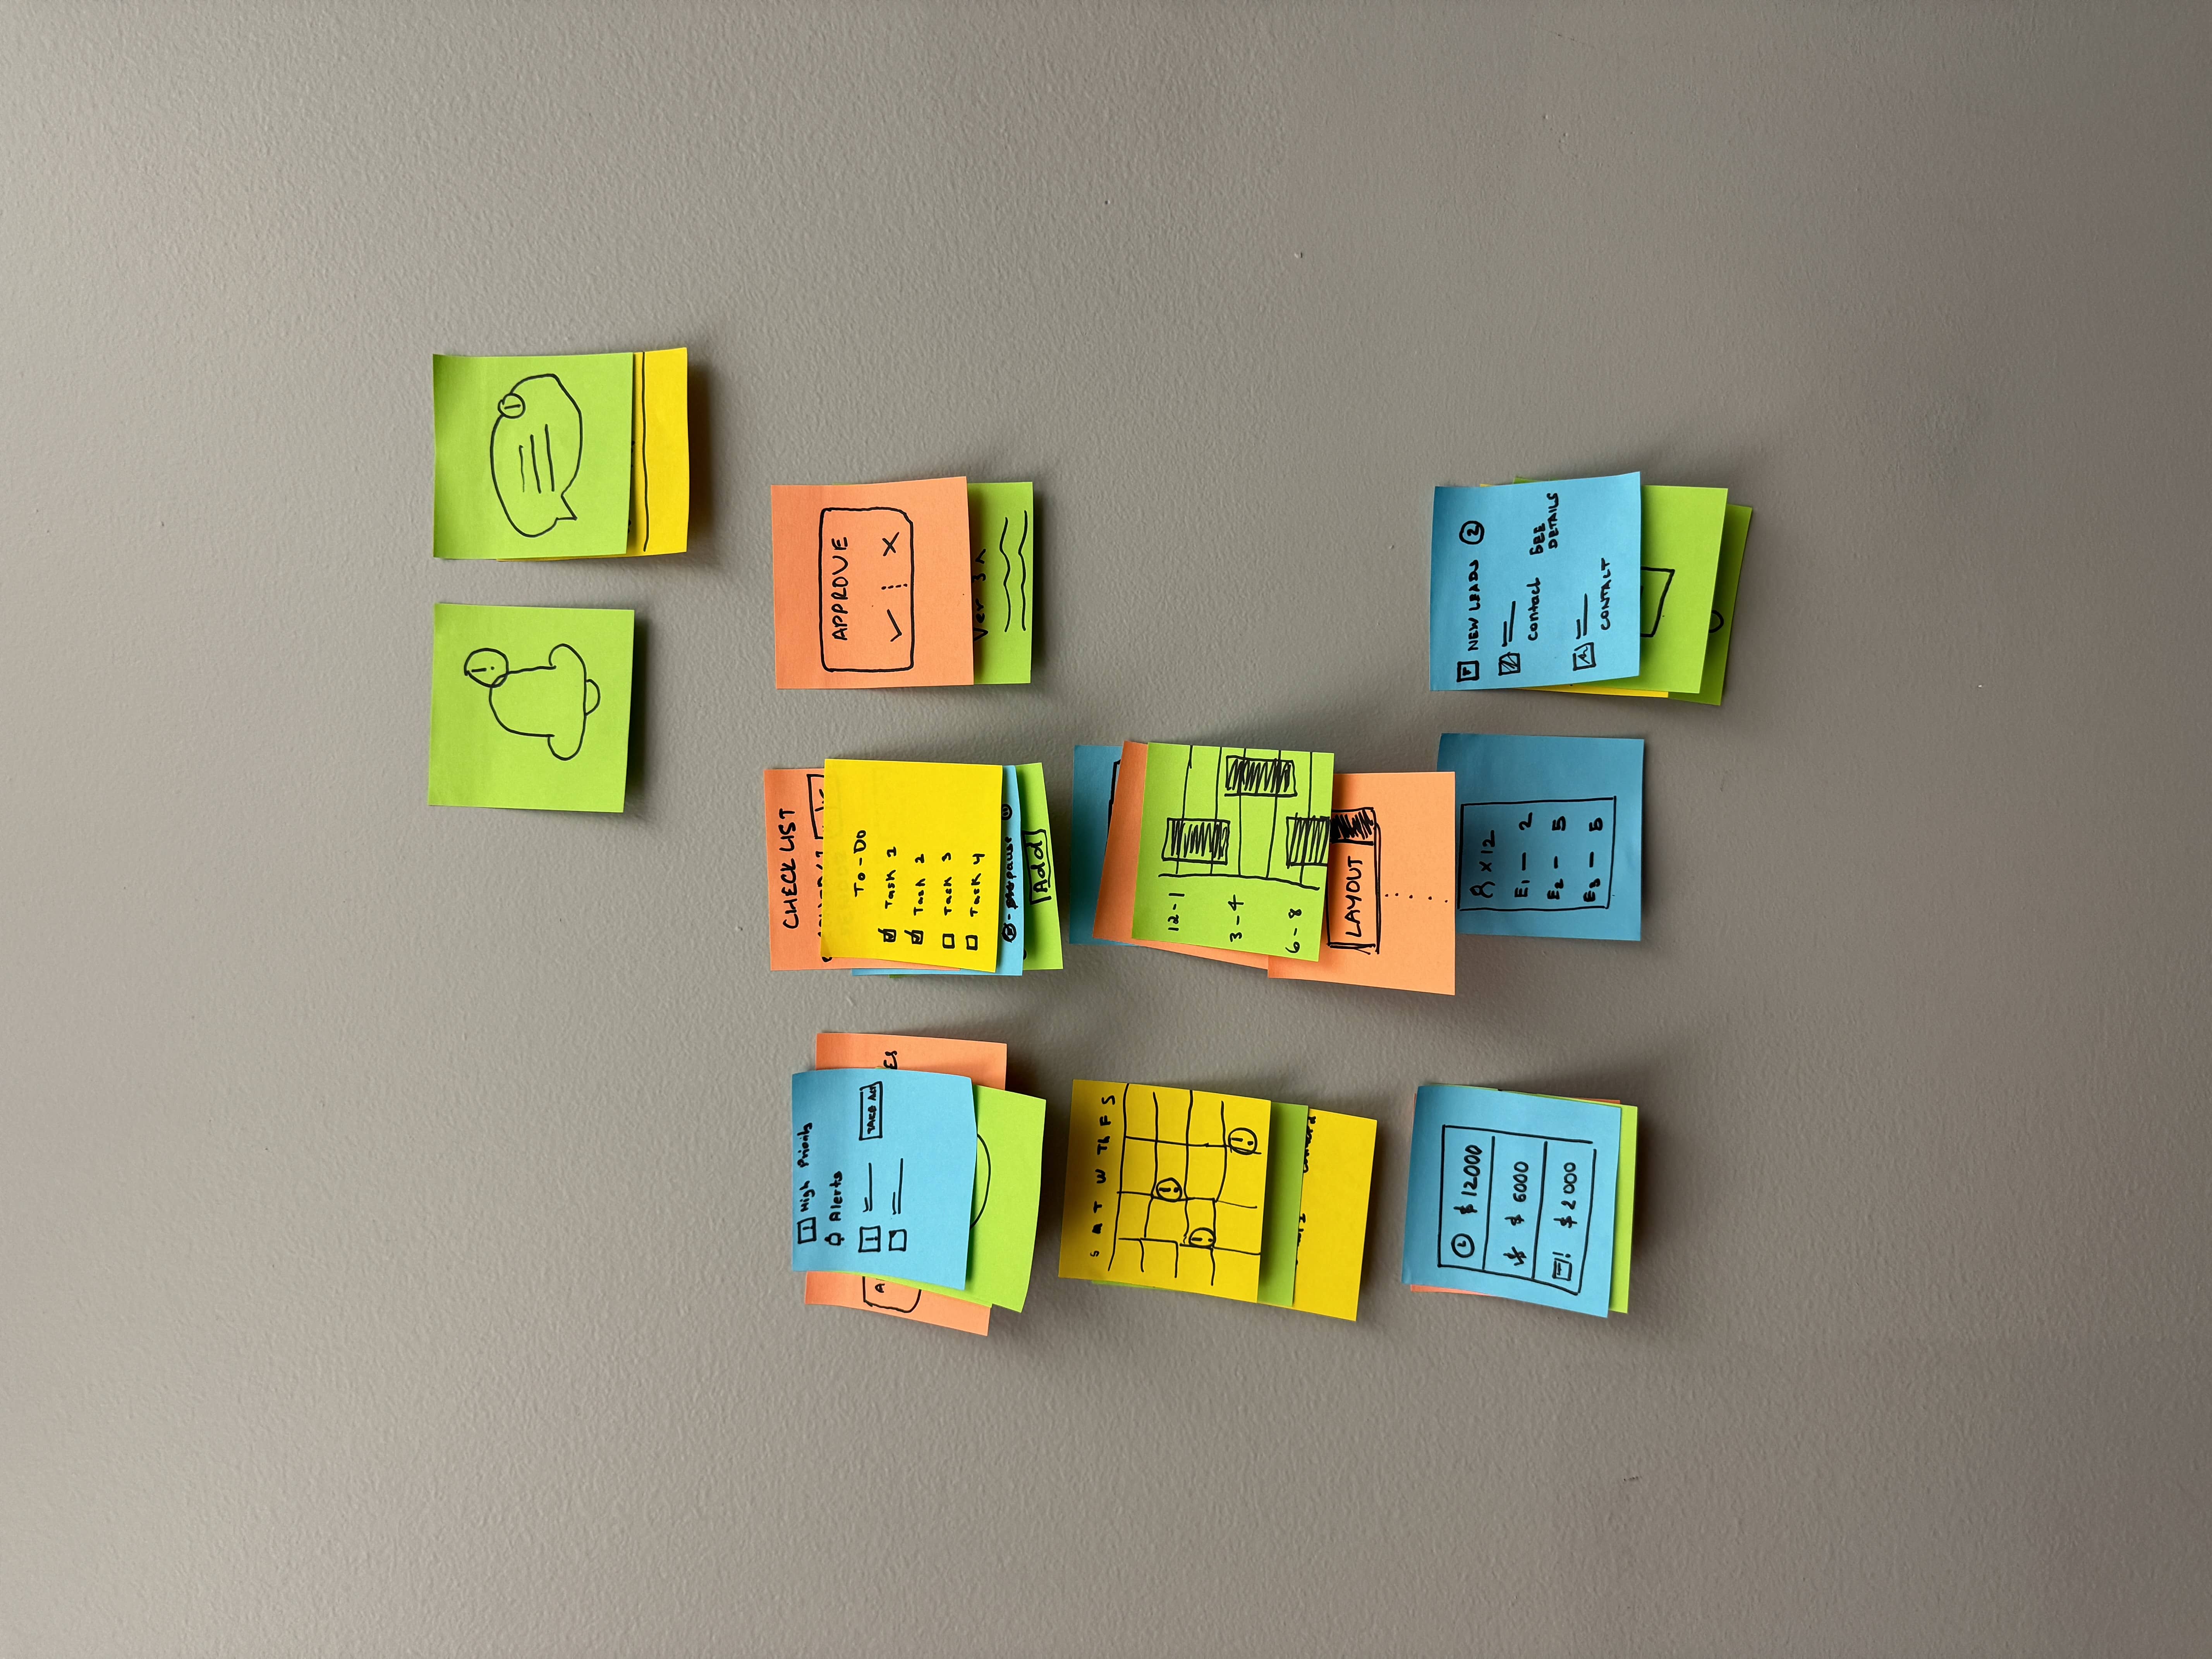 !
!
! High Priority
Alerts
! TAKE ACT
A
ES
CHECK LIST
To-Do
Task 1
Task 2
Task 3
Task 4
pause
Add
APPROVE
Ver 3
S M T W Th F S
!
!
!
12-1
3-4
6-8
LAYOUT
$ 12000
$ 6000
! $ 2000
x 12
E1 - 2
E2 - 5
E3 - 5
NEW LEADS 2
contact SEE
DETAILS
CONTACT